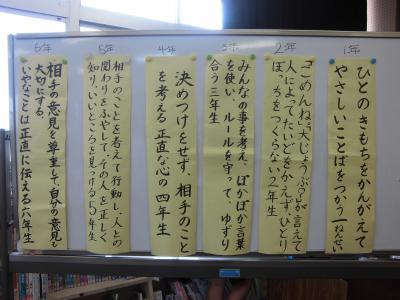 1年
ひとのきもちをかんがえて
やさしいことばをつかう一ねんせい
2年
「ごめんね」「大じょうぶ?」が言えて
人によってたいどをかえず、ひとり
ぼっちをつくらない2年生
3年
みんなの事を考え、ぽかぽか言葉
を使い、ルールを守って、ゆずり
合う三年生
4年
決めつけをせず、相手のこと
を考える正直な心の四年生
5年
相手のことを考えて行動し、人との
関わりをふやして、その人を正しく
知り、いいところを見つける5年生
6年
相手の意見を尊重して自分の意見も
大切にする。
いやなことは正直に伝える六年生